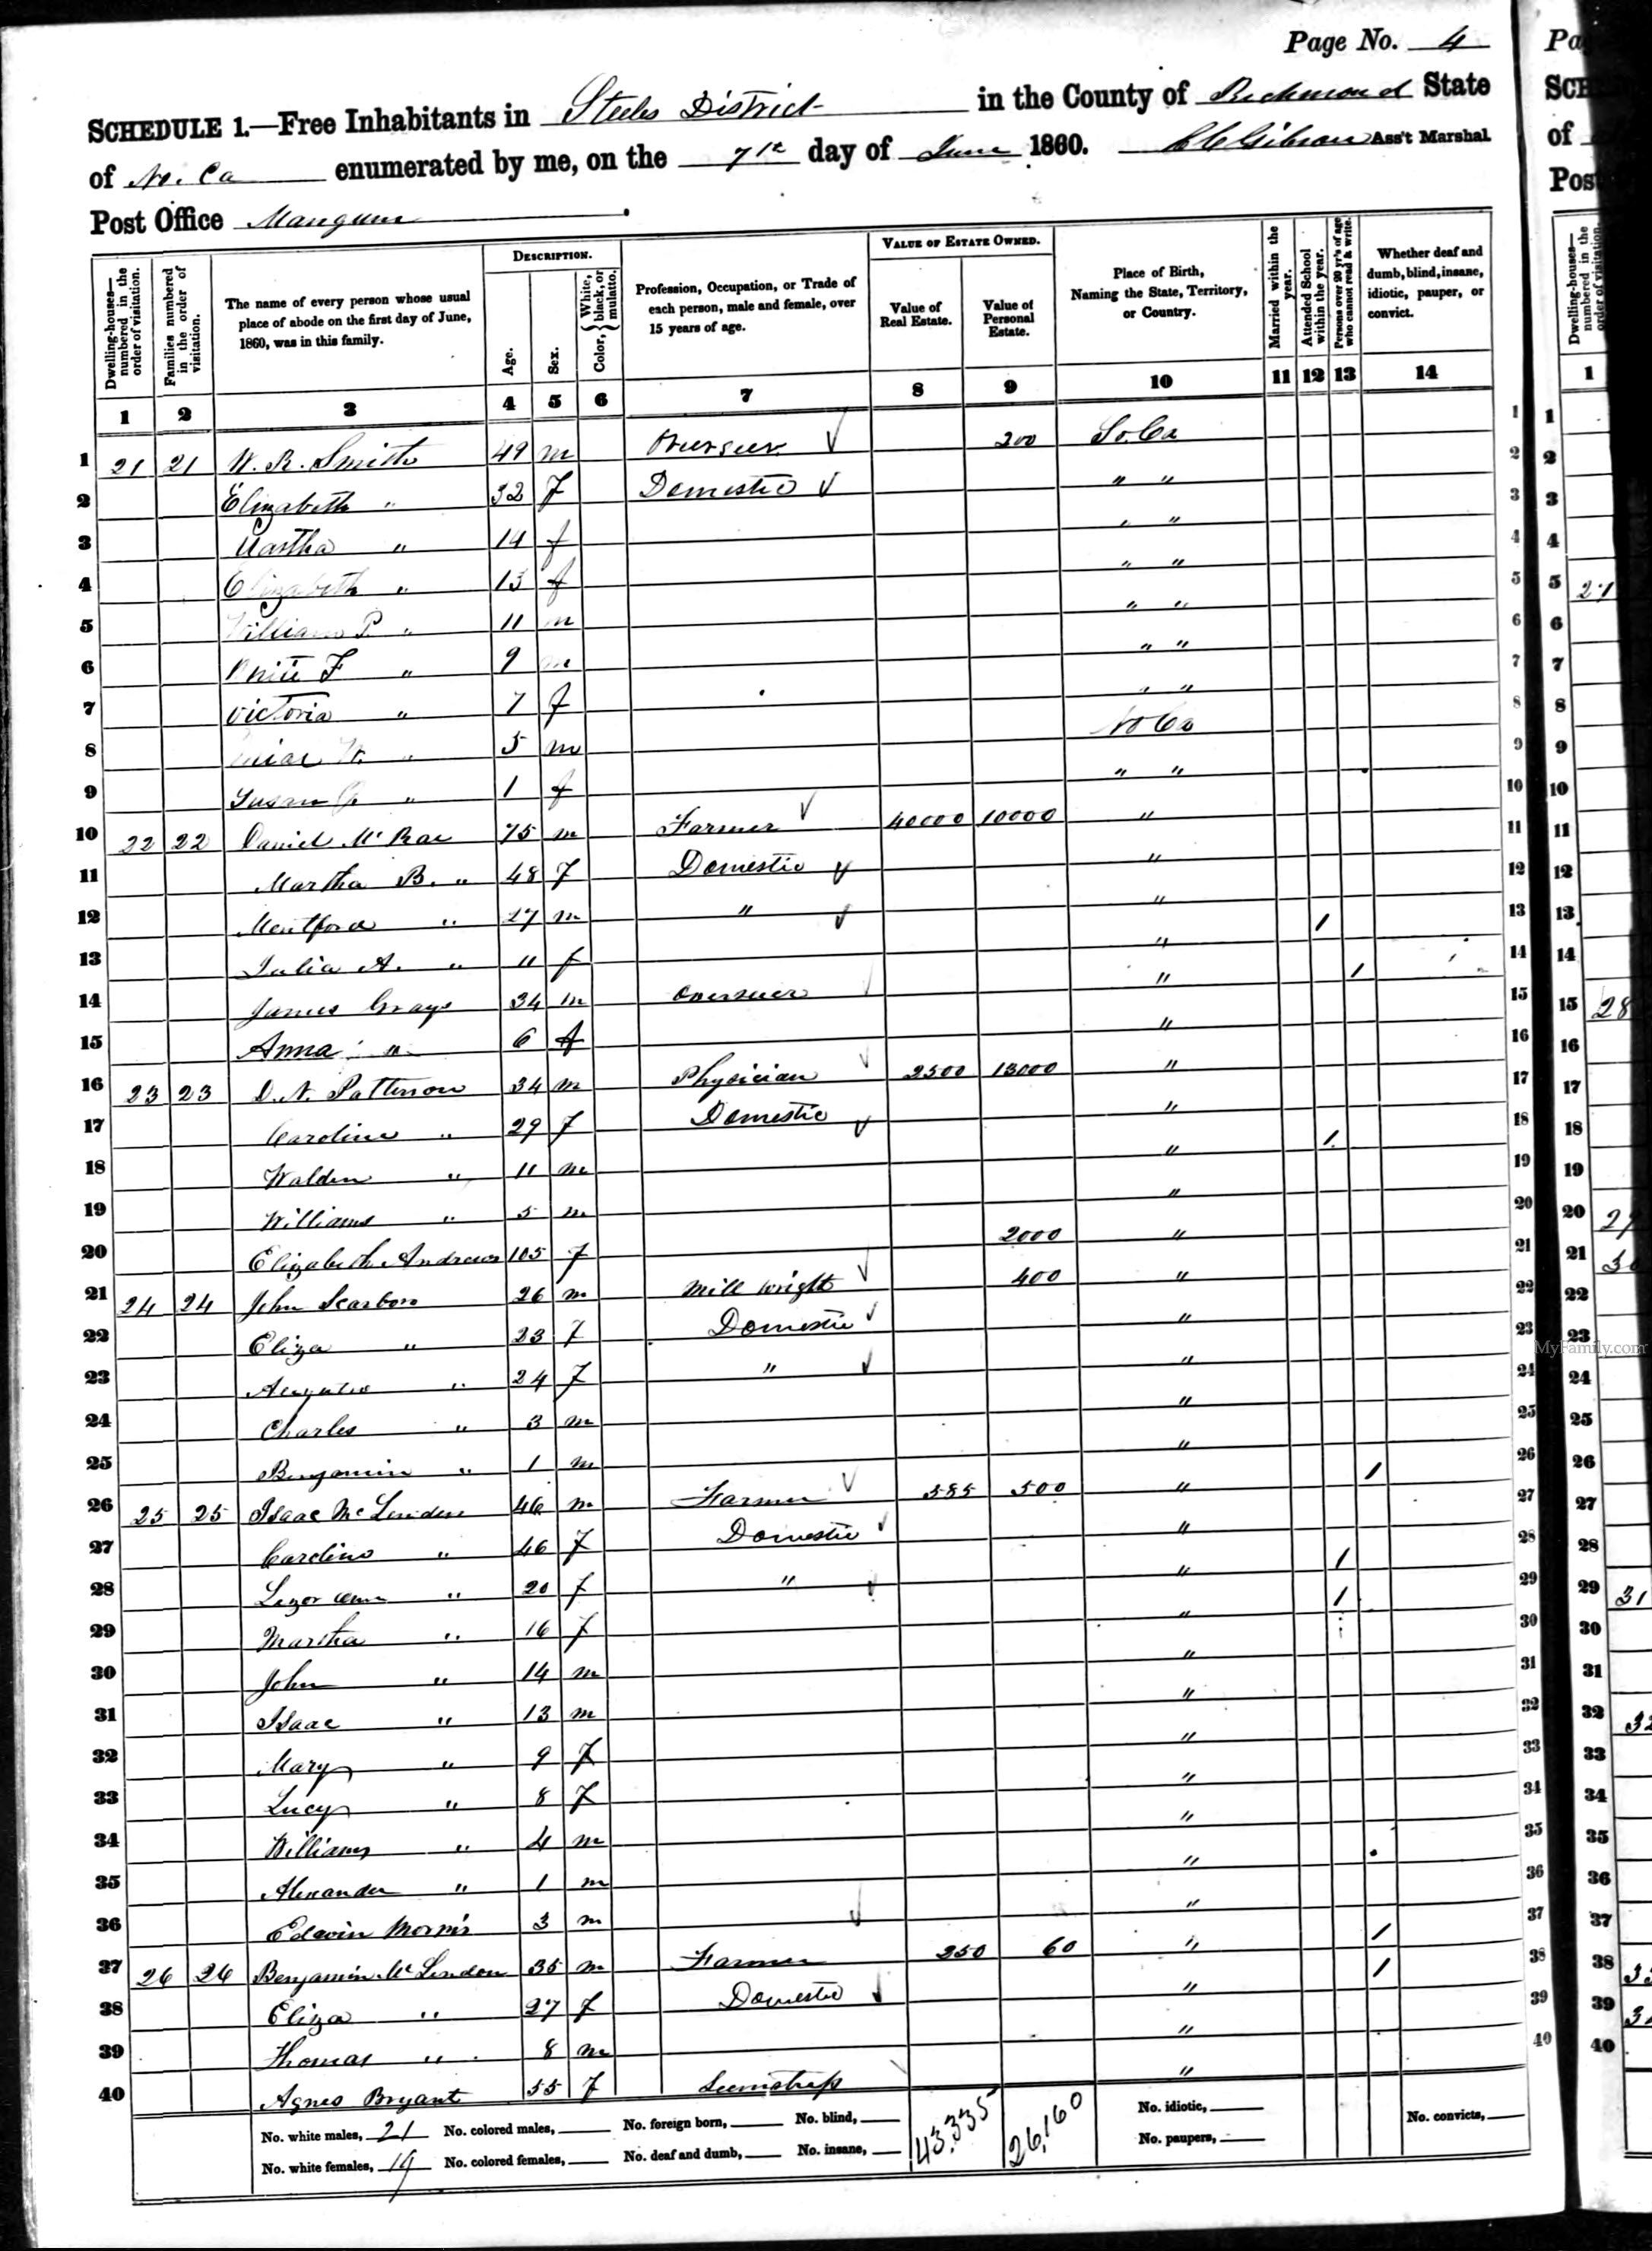 Page No. 4
SCHEDULE 1.—Free Inhabitants in Steeles District in the County of Richmond State
of No. Ca enumerated by me, on the 7th day of June 1860. Ass't Marshal
Post Office Mangum
Dwelling-houses—numbered in the order of visitation.
Families numbered in the order of visitation.
The name of every person whose usual place of abode on the first day of June, 1860, was in this family.
DESCRIPTION.
Age.
Sex.
Color, { White, black, or mulatto.
Profession, Occupation, or Trade of each person, male and female, over 15 years of age.
VALUE OF ESTATE OWNED.
Value of Real Estate.
Value of Personal Estate.
Place of Birth, Naming the State, Territory, or Country.
Married within the year.
Attended School within the year.
Persons over 20 yr's of age who cannot read & write.
Whether deaf and dumb, blind, insane, idiotic, pauper, or convict.
1 2 3 4 5 6 7 8 9 10 11 12 13 14
1 21 21 W. R. Smith 49 m Overseer 200 So Ca 1
2 Elizabeth " 32 f Domestic " " 2
3 Martha " 14 f " " 3
4 Elizabeth " 13 f " " 4
5 William P. " 11 m " " 5
6 F " 9 m " " 6
7 Victoria " 7 f " " 7
8 W. " 5 m No Ca 8
9 Susan " 1 f " " 9
10 22 22 Daniel McRae 75 m Farmer 40000 10000 " 10
11 Martha B. " 48 f Domestic " 11
12 " 27 m " " 12
13 Julia A. " 11 f " / 13
14 James Grays 34 m Overseer " / 14
15 Anna " 6 f " 15
16 23 23 D. N. Patterson 34 m Physician 2500 13000 " 16
17 Caroline " 29 f Domestic " 17
18 Walden " 11 m " / 18
19 William " 5 m " 19
20 Elizabeth Andrews 105 f 2000 " 20
21 24 24 John Scarboro 26 m Mill wright 400 " 21
22 Eliza " 23 f Domestic " 22
23 " 24 f " " 23
24 Charles " 3 m " 24
25 Benjamin " 1 m " 25
26 25 25 Isaac McLendon 46 m Farmer 585 500 " / 26
27 Caroline " 46 f Domestic " 27
28 " 20 f " " / 28
29 Martha " 16 f " / 29
30 John " 14 m " 30
31 Isaac " 13 m " 31
32 Mary " 9 f " 32
33 Lucy " 8 f " 33
34 William " 4 m " 34
35 Alexander " 1 m " 35
36 Edwin Morris 3 m " 36
37 26 26 Benjamin McLendon 35 m Farmer 250 60 " / 37
38 Eliza " 27 f Domestic " / 38
39 Thomas " 8 m " 39
40 Agnes Bryant 55 f Seemstress " 40
No. white males, 21 No. colored males, No. foreign born, No. blind, 43,335 26,160 No. idiotic, No. convicts,
No. white females, 19 No. colored females, No. deaf and dumb, No. insane, No. paupers,
MyFamily.com
Pa
SCH
of
Pos
Dwelling-houses—numbered in the order of visitation.
1
1
2
3
4
5 27
6
7
8
9
10
11
12
13
14
15 28
16
17
18
19
20 29
21 30
22
23
24
25
26
27
28
29 31
30
31
32 32
33
34
35
36
37
38
39
40